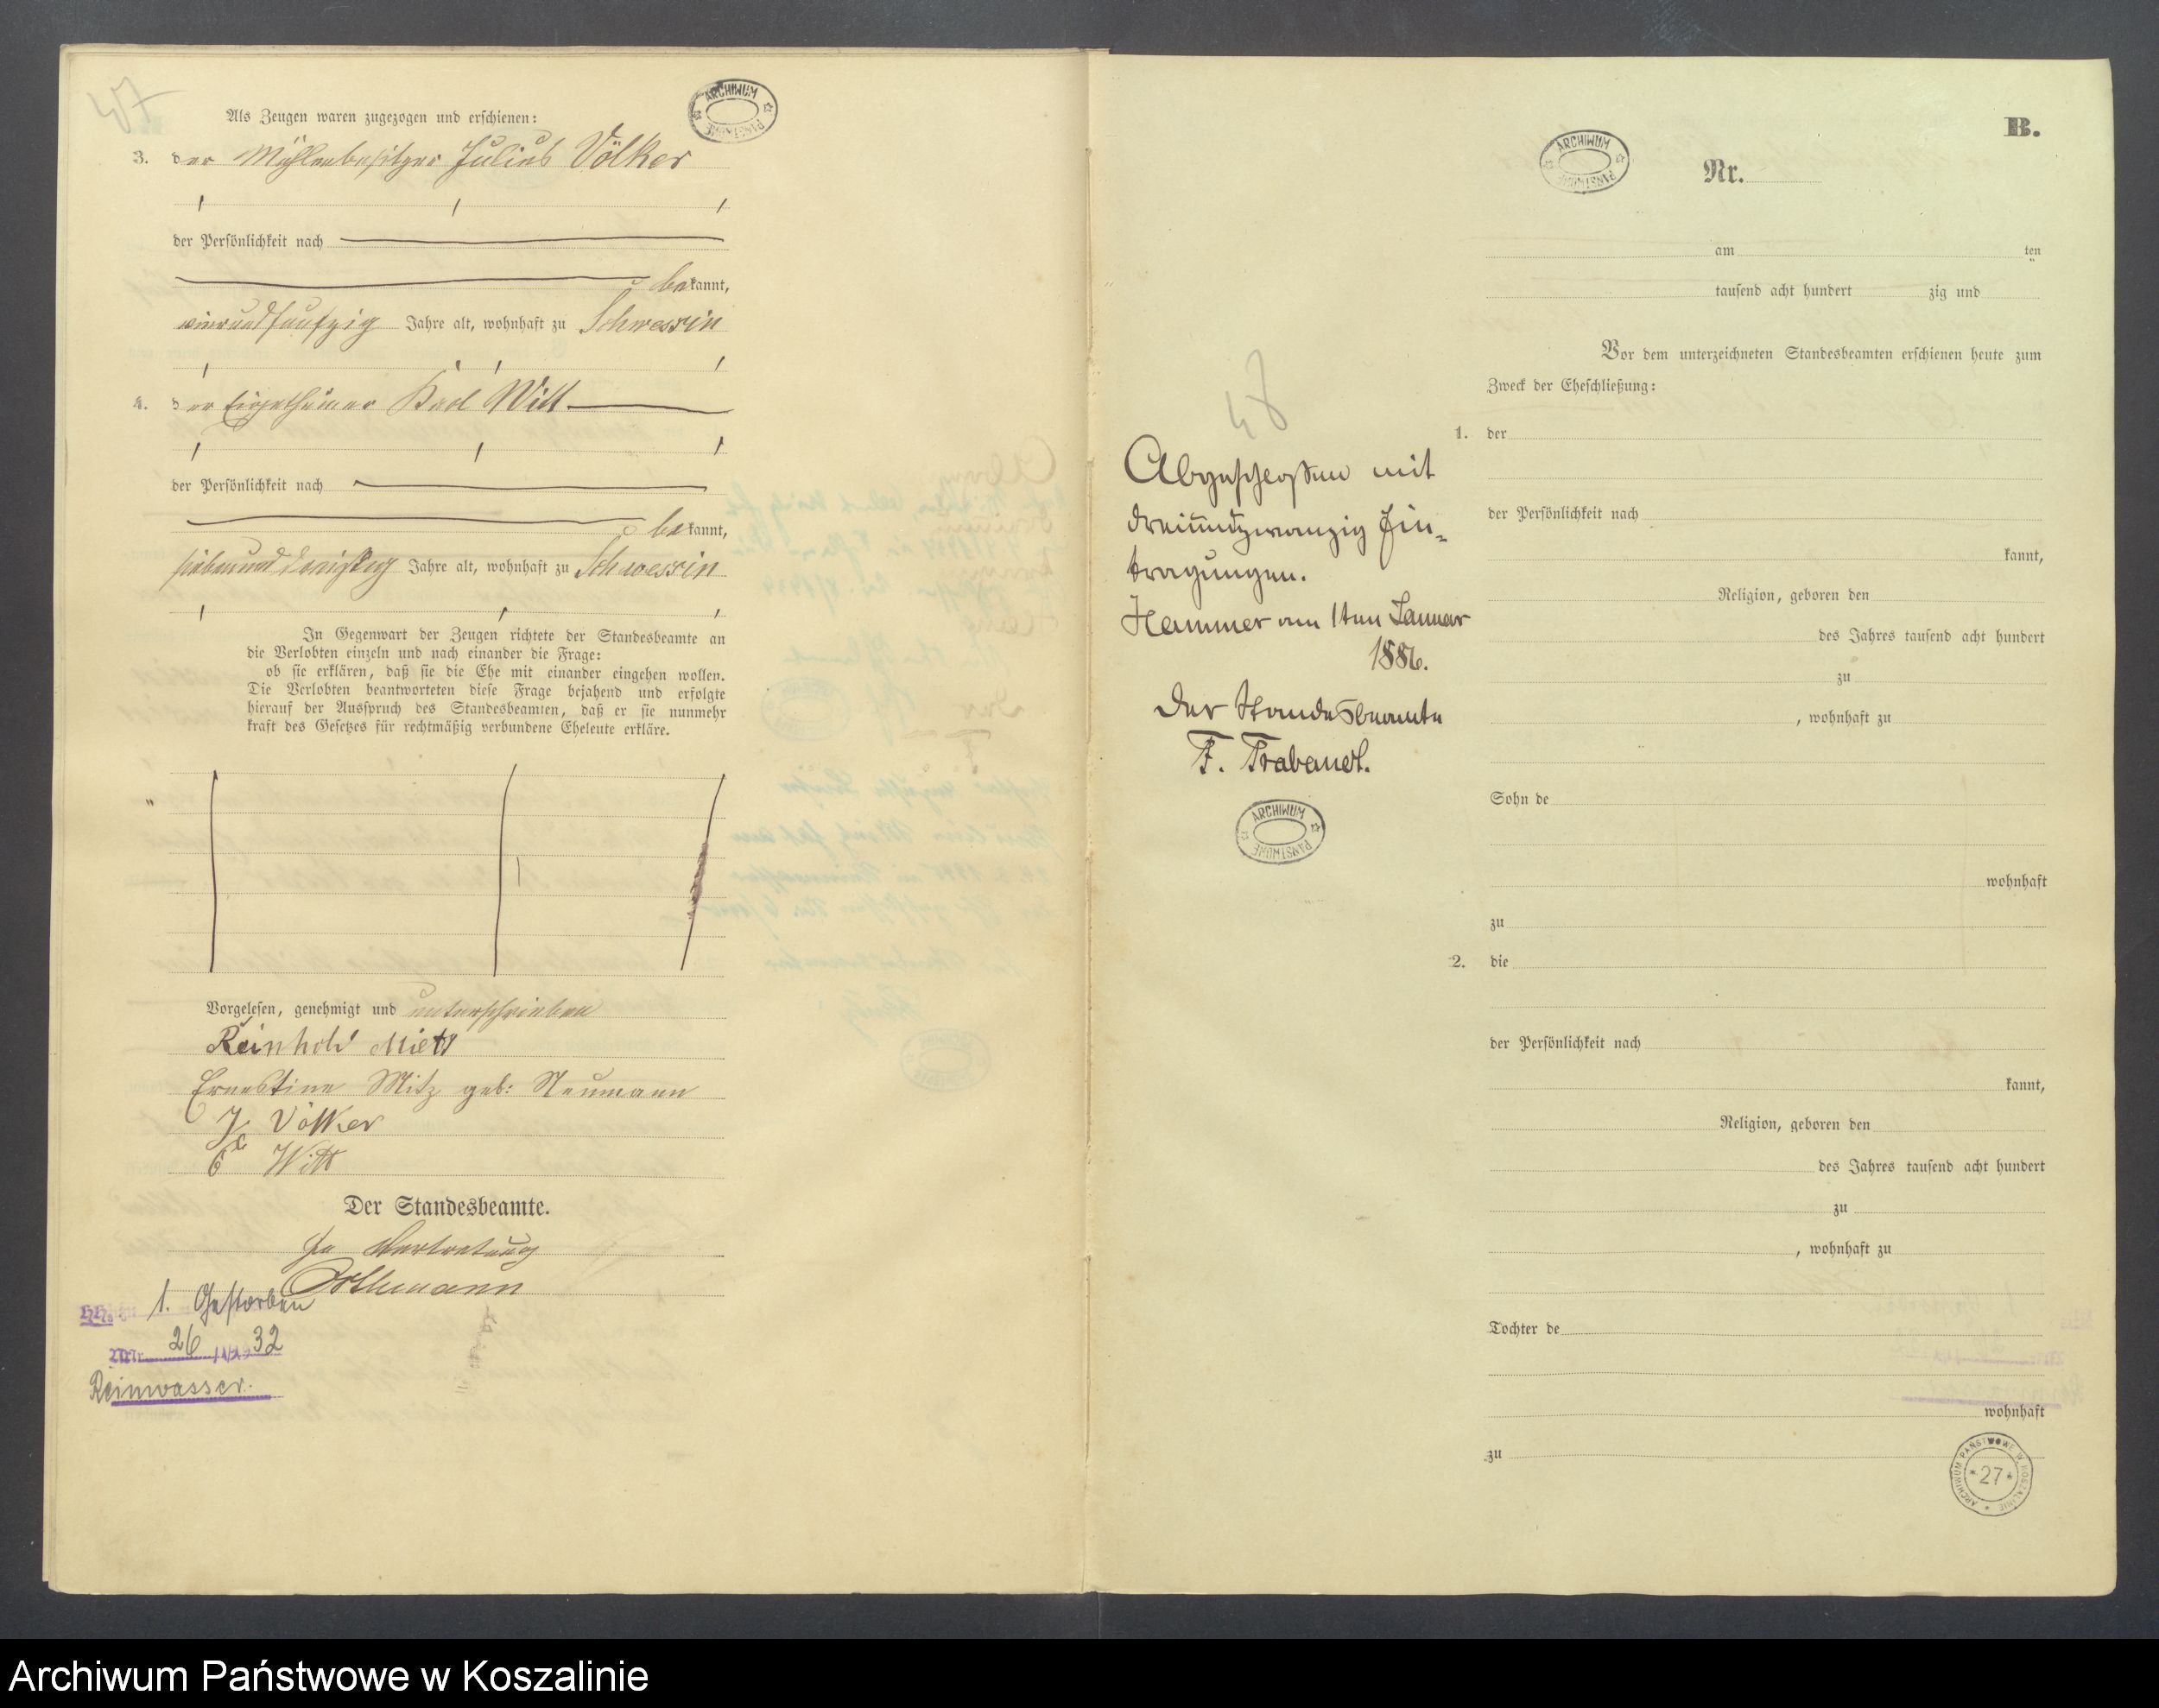 47
Als Zeugen waren zugezogen und erschienen:
3. der Mühlenbesitzer Julius Völker
der Persönlichkeit nach
bekannt,
vierundfunfzig Jahre alt, wohnhaft zu Schwessin
4. der Eigenthümer Karl Witt
der Persönlichkeit nach
bekannt,
siebenunddreißig Jahre alt, wohnhaft zu Schwessin
In Gegenwart der Zeugen richtete der Standesbeamte an
die Verlobten einzeln und nach einander die Frage:
ob sie erklären, daß sie die Ehe mit einander eingehen wollen.
Die Verlobten beantworteten diese Frage bejahend und erfolgte
hierauf der Ausspruch des Standesbeamten, daß er sie nunmehr
kraft des Gesetzes für rechtmäßig verbundene Eheleute erkläre.
Vorgelesen, genehmigt und unterschrieben
Reinhold
Ernestine Mitz geb: Neumann
J. Völker
Witt
Der Standesbeamte.
In Vertretung
1. Gestorben
Nr. 26 1932
Reinwasser.
ARCHIWUM PAŃSTWOWE
48
Abgeschlossen mit
dreiundzwanzig Ein-
tragungen.
Hammer am 1ten Januar
1886.
Der Standesbeamte
F. Trabandt.
ARCHIWUM PAŃSTWOWE
B.
ARCHIWUM PAŃSTWOWE
Nr.
am ten
tausend acht hundert zig und
Vor dem unterzeichneten Standesbeamten erschienen heute zum
Zweck der Eheschließung:
1. der
der Persönlichkeit nach
kannt,
Religion, geboren den
des Jahres tausend acht hundert
zu
, wohnhaft zu
Sohn de
wohnhaft
zu
2. die
der Persönlichkeit nach
kannt,
Religion, geboren den
des Jahres tausend acht hundert
zu
, wohnhaft zu
Tochter de
wohnhaft
zu
ARCHIWUM PAŃSTWOWE W KOSZALINIE
27
Archiwum Państwowe w Koszalinie